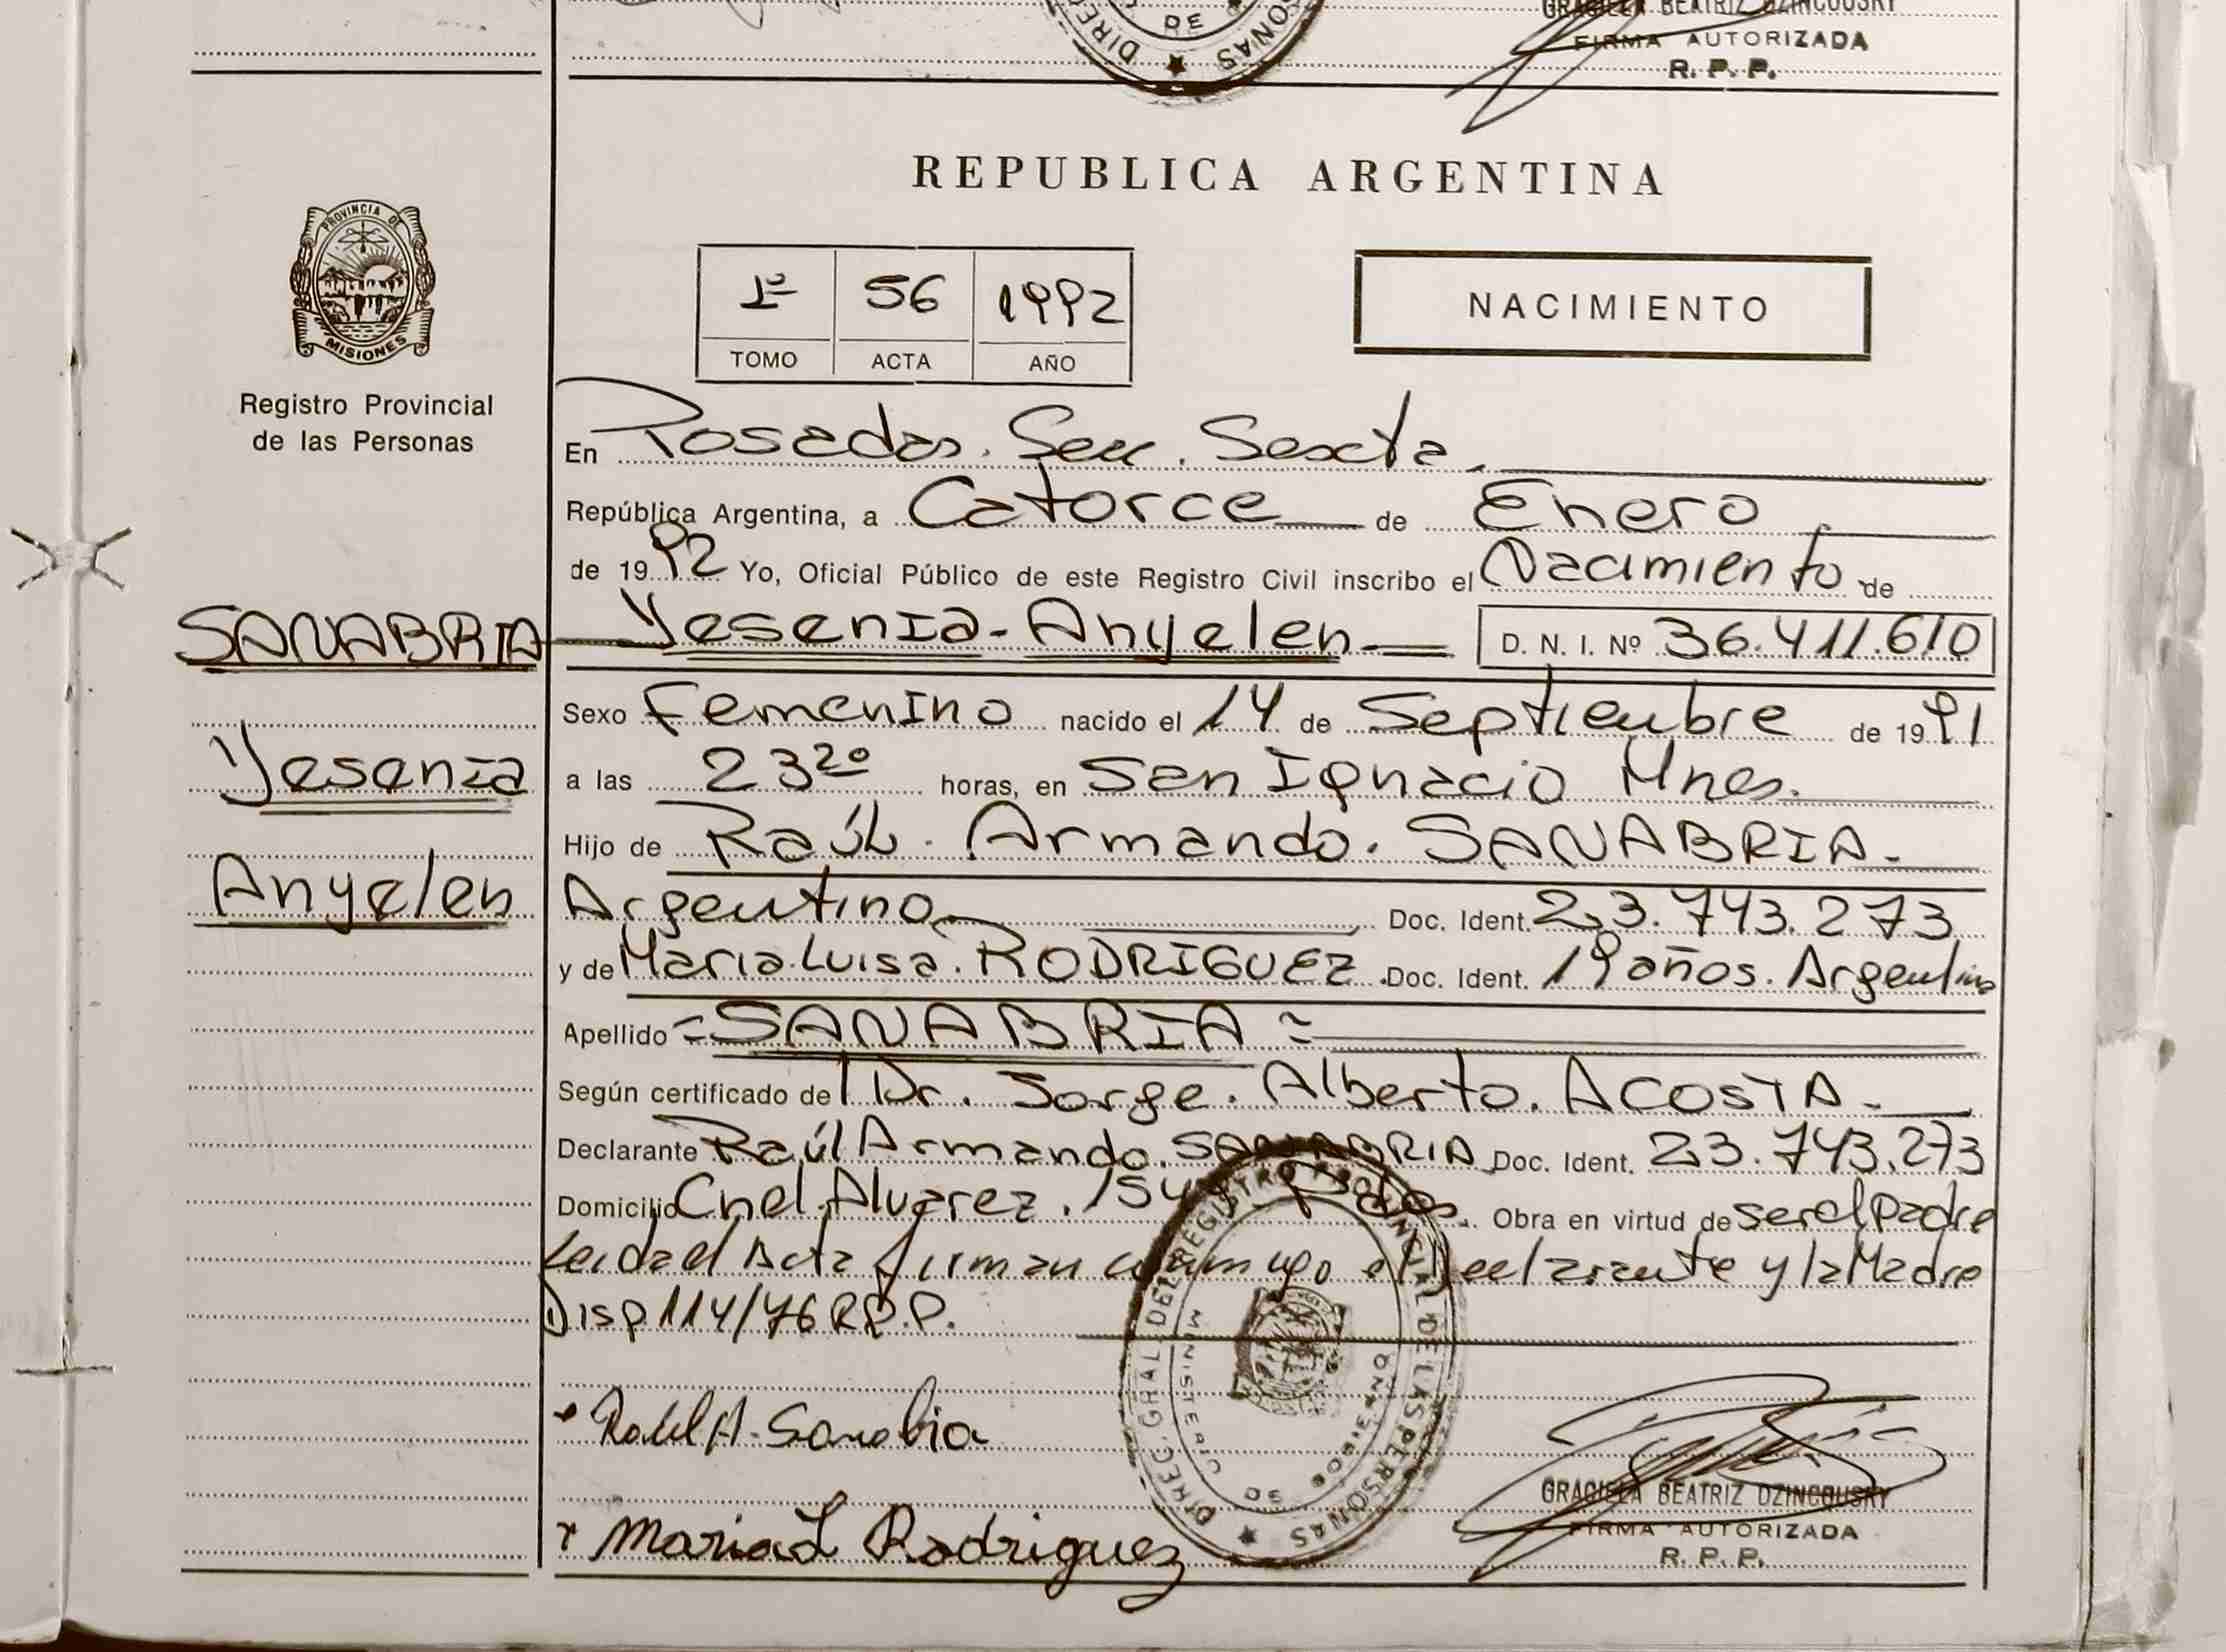 GRACIELA BEATRIZ DZINCOUSKY
FIRMA AUTORIZADA
R. P. P.
DE
REPUBLICA ARGENTINA
PROVINCIA DE
MISIONES
Registro Provincial
de las Personas
1º 56 1992
TOMO ACTA AÑO
NACIMIENTO
En Posadas. Secc. Sexta.
República Argentina, a Catorce de Enero
de 1992 Yo, Oficial Público de este Registro Civil inscribo el Nacimiento de
SANABRIA Yesenia-Anyelen D. N. I. Nº 36.411.610
Sexo Femenino nacido el 14 de Septiembre de 1991
Yesenia
a las 23 20 horas, en San Ignacio Mnes.
Hijo de Raúl. Armando. SANABRIA.
Anyelen
Argentino Doc. Ident. 23.743.273
y de Maria Luisa. RODRIGUEZ. Doc. Ident. 19 años. Argentina
Apellido =SANABRIA=
Según certificado del Dr. Jorge. Alberto. ACOSTA.
Declarante Raúl Armando. SANABRIA Doc. Ident. 23.743.273
Domicilio Cnel. Alvarez. Obra en virtud de ser el Padre
Leida el Acta firman conmigo el Declarante y la Madre
Disp 114/76 R.P.P.
Raul A. Sanabia
Maria L Rodriguez
DIREC. GRAL. DEL REGISTRO PROVINCIAL DE LAS PERSONAS
MINISTERIO DE GOBIERNO
GRACIELA BEATRIZ DZINCOUSKY
FIRMA AUTORIZADA
R. P. P.